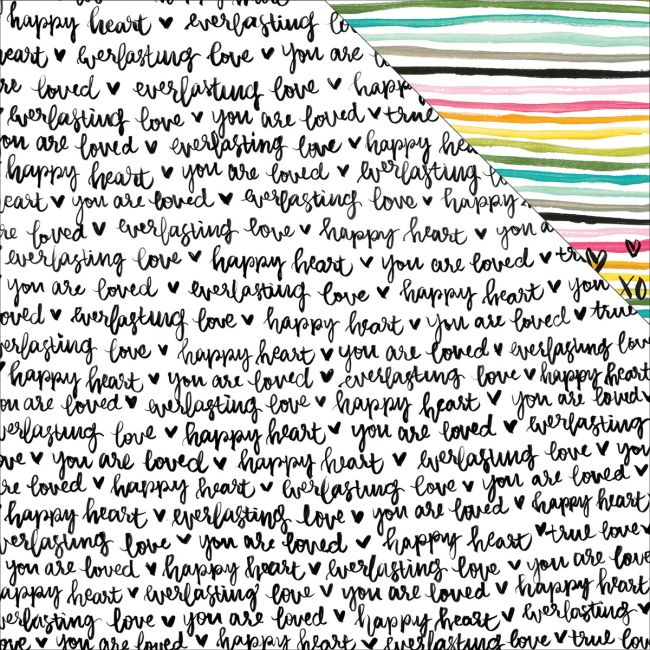 happy heart ♥ everlasting
heart ♥ everlasting love ♥ you are
loved ♥ everlasting love ♥ happy
everlasting love ♥ you are loved ♥ true
you are loved ♥ everlasting love ♥ happy
happy heart ♥ you are loved ♥ everlasting
heart ♥ you are loved ♥ everlasting love ♥ happy
loved ♥ everlasting love ♥ happy heart ♥ you
everlasting love ♥ happy heart ♥ you are loved ♥
you are loved ♥ everlasting love ♥ happy heart ♥ you
XO
loved ♥ everlasting love ♥ happy heart ♥ you are loved ♥ true
everlasting love ♥ happy heart ♥ you are loved ♥ everlasting love
happy heart ♥ you are loved ♥ everlasting love ♥ happy heart
you are loved ♥ everlasting love ♥ happy heart ♥ you are loved
everlasting love ♥ happy heart ♥ you are loved ♥ everlasting
love ♥ you are loved ♥ happy heart ♥ everlasting love ♥ you
loved ♥ happy heart ♥ everlasting love ♥ you are loved ♥
happy heart ♥ everlasting love ♥ you are loved ♥ happy heart
everlasting love ♥ you are loved ♥ happy heart ♥ true love ♥
you are loved ♥ happy heart ♥ everlasting love ♥ you are love
happy heart ♥ everlasting love ♥ you are loved ♥ happy heart
everlasting love ♥ you are loved ♥ happy heart ♥ everlasting
love ♥ you are loved ♥ happy heart ♥ everlasting love ♥ true love